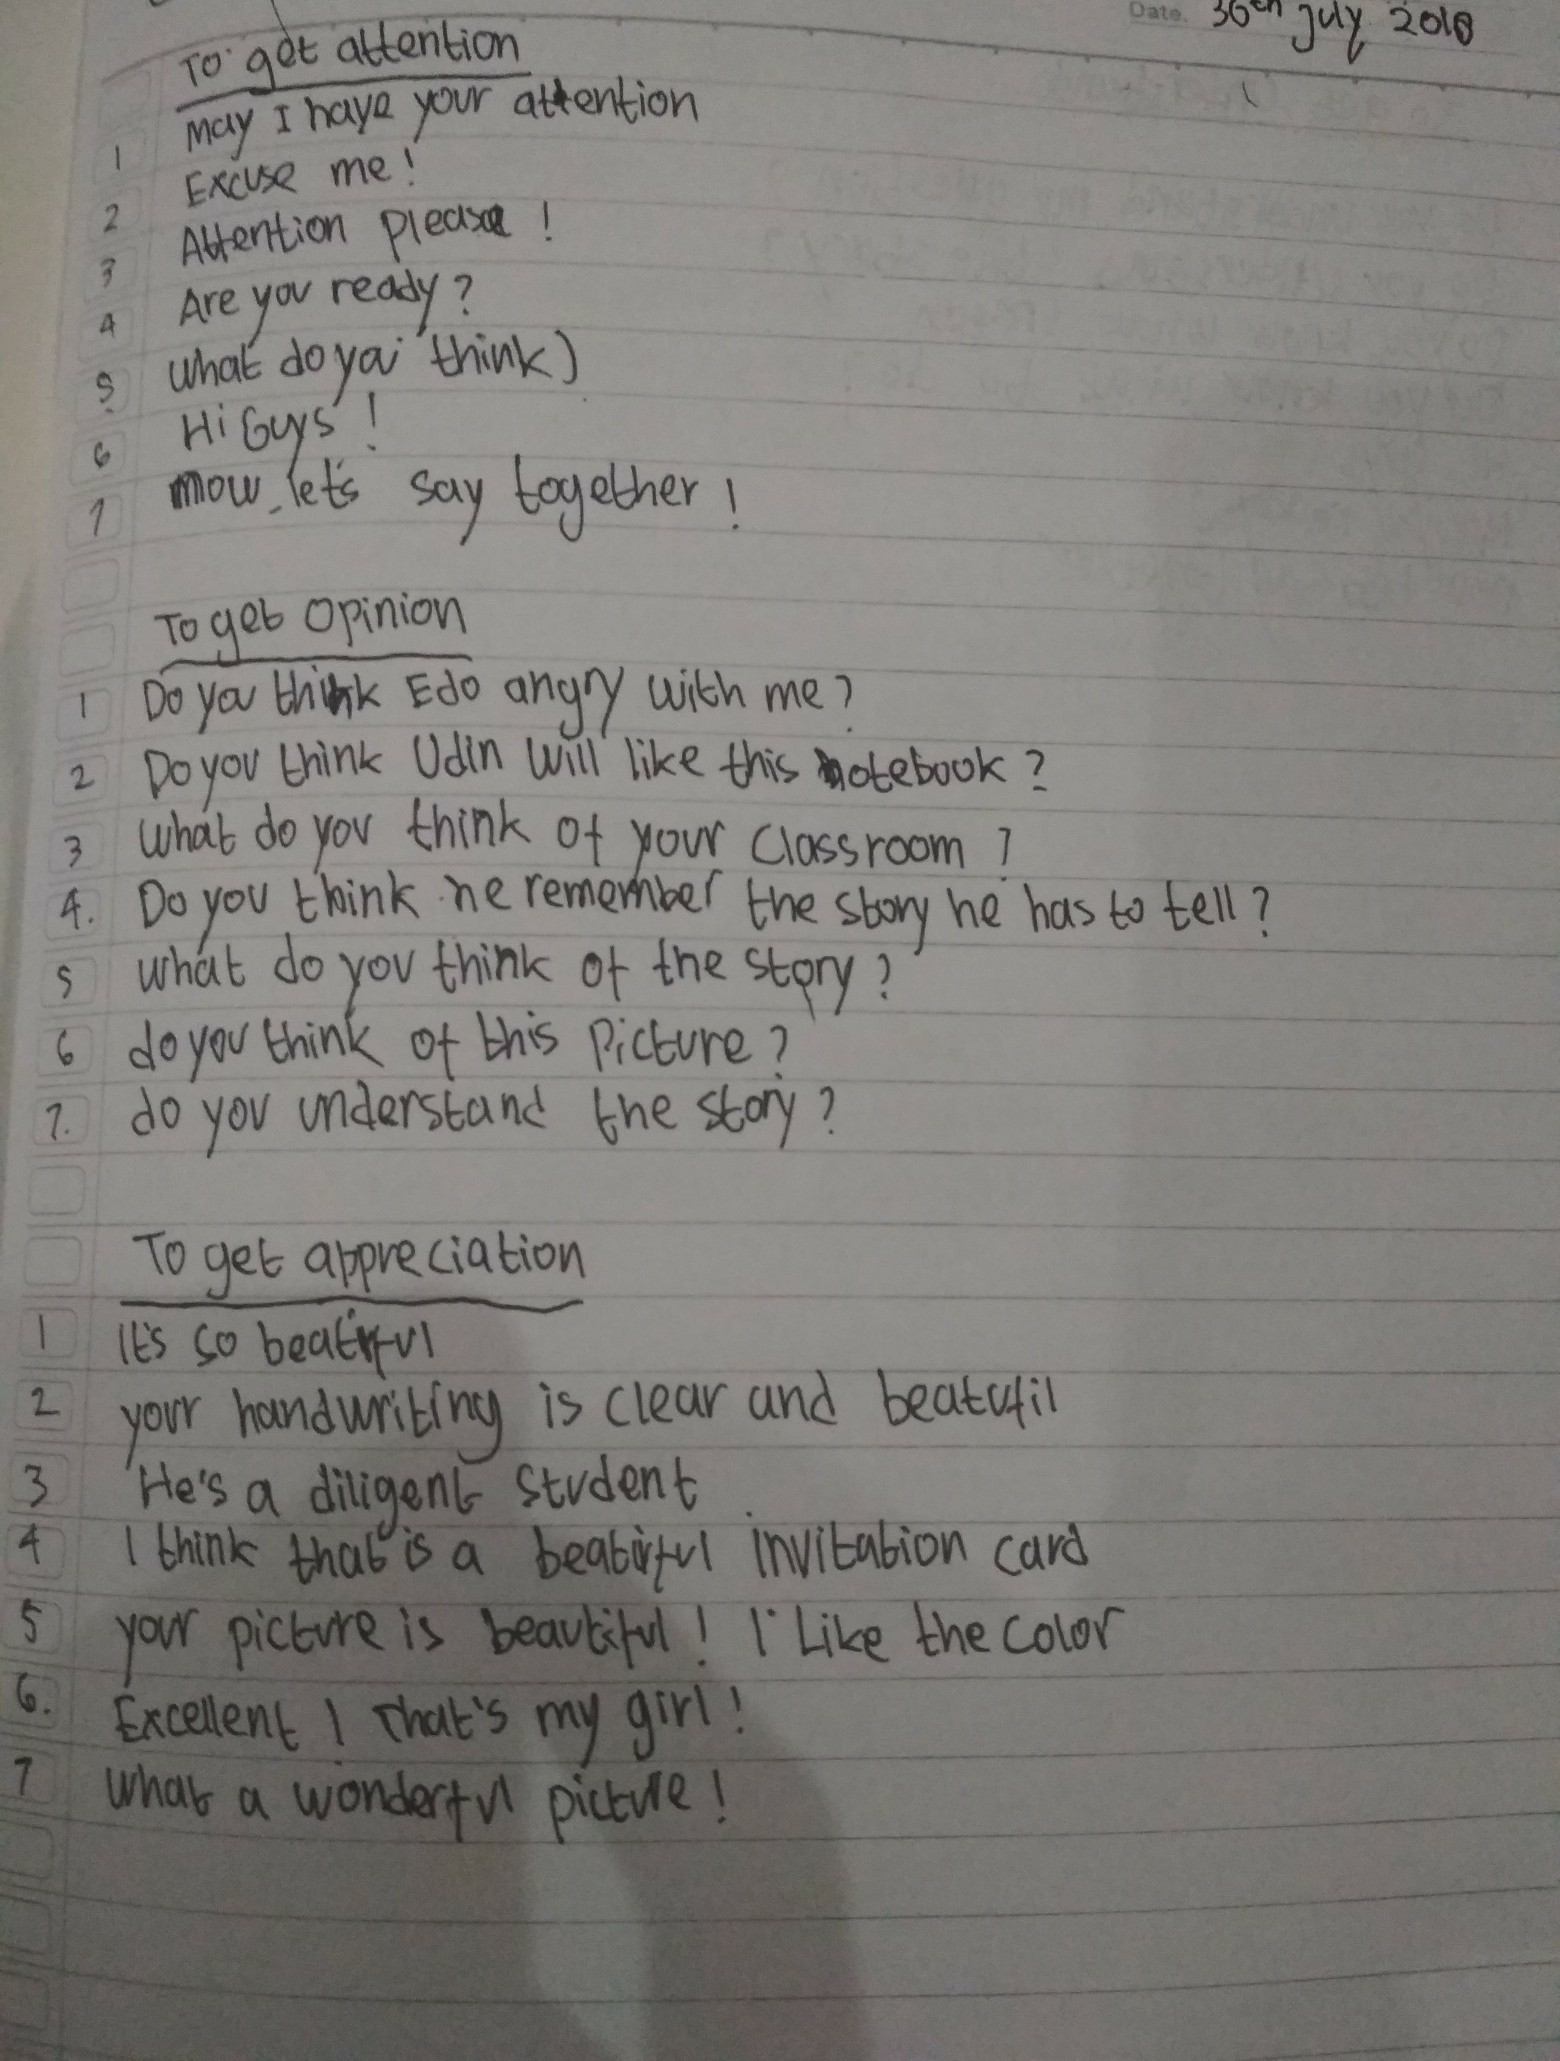 Date. 30th July 2018
To get attention
1 May I have your attention
2 Excuse me!
3 Attention please!
4 Are you ready?
5 What do you think)
6 Hi Guys!
7 mow, let's say together!
To get Opinion
1 Do you think Edo angry with me?
2 Do you think Udin will like this notebook?
3 What do you think of your Classroom?
4. Do you think he remember the story he has to tell?
5 What do you think of the story?
6 do you think of this Picture?
7. do you understand the story?
To get appreciation
1 It's so beatiful
2 your handwriting is clear and beatufil
3 He's a diligent student
4 I think that is a beatiful invitation card
5 your picture is beautiful! I Like the color
6. Excellent! That's my girl!
7 What a wonderful picture!